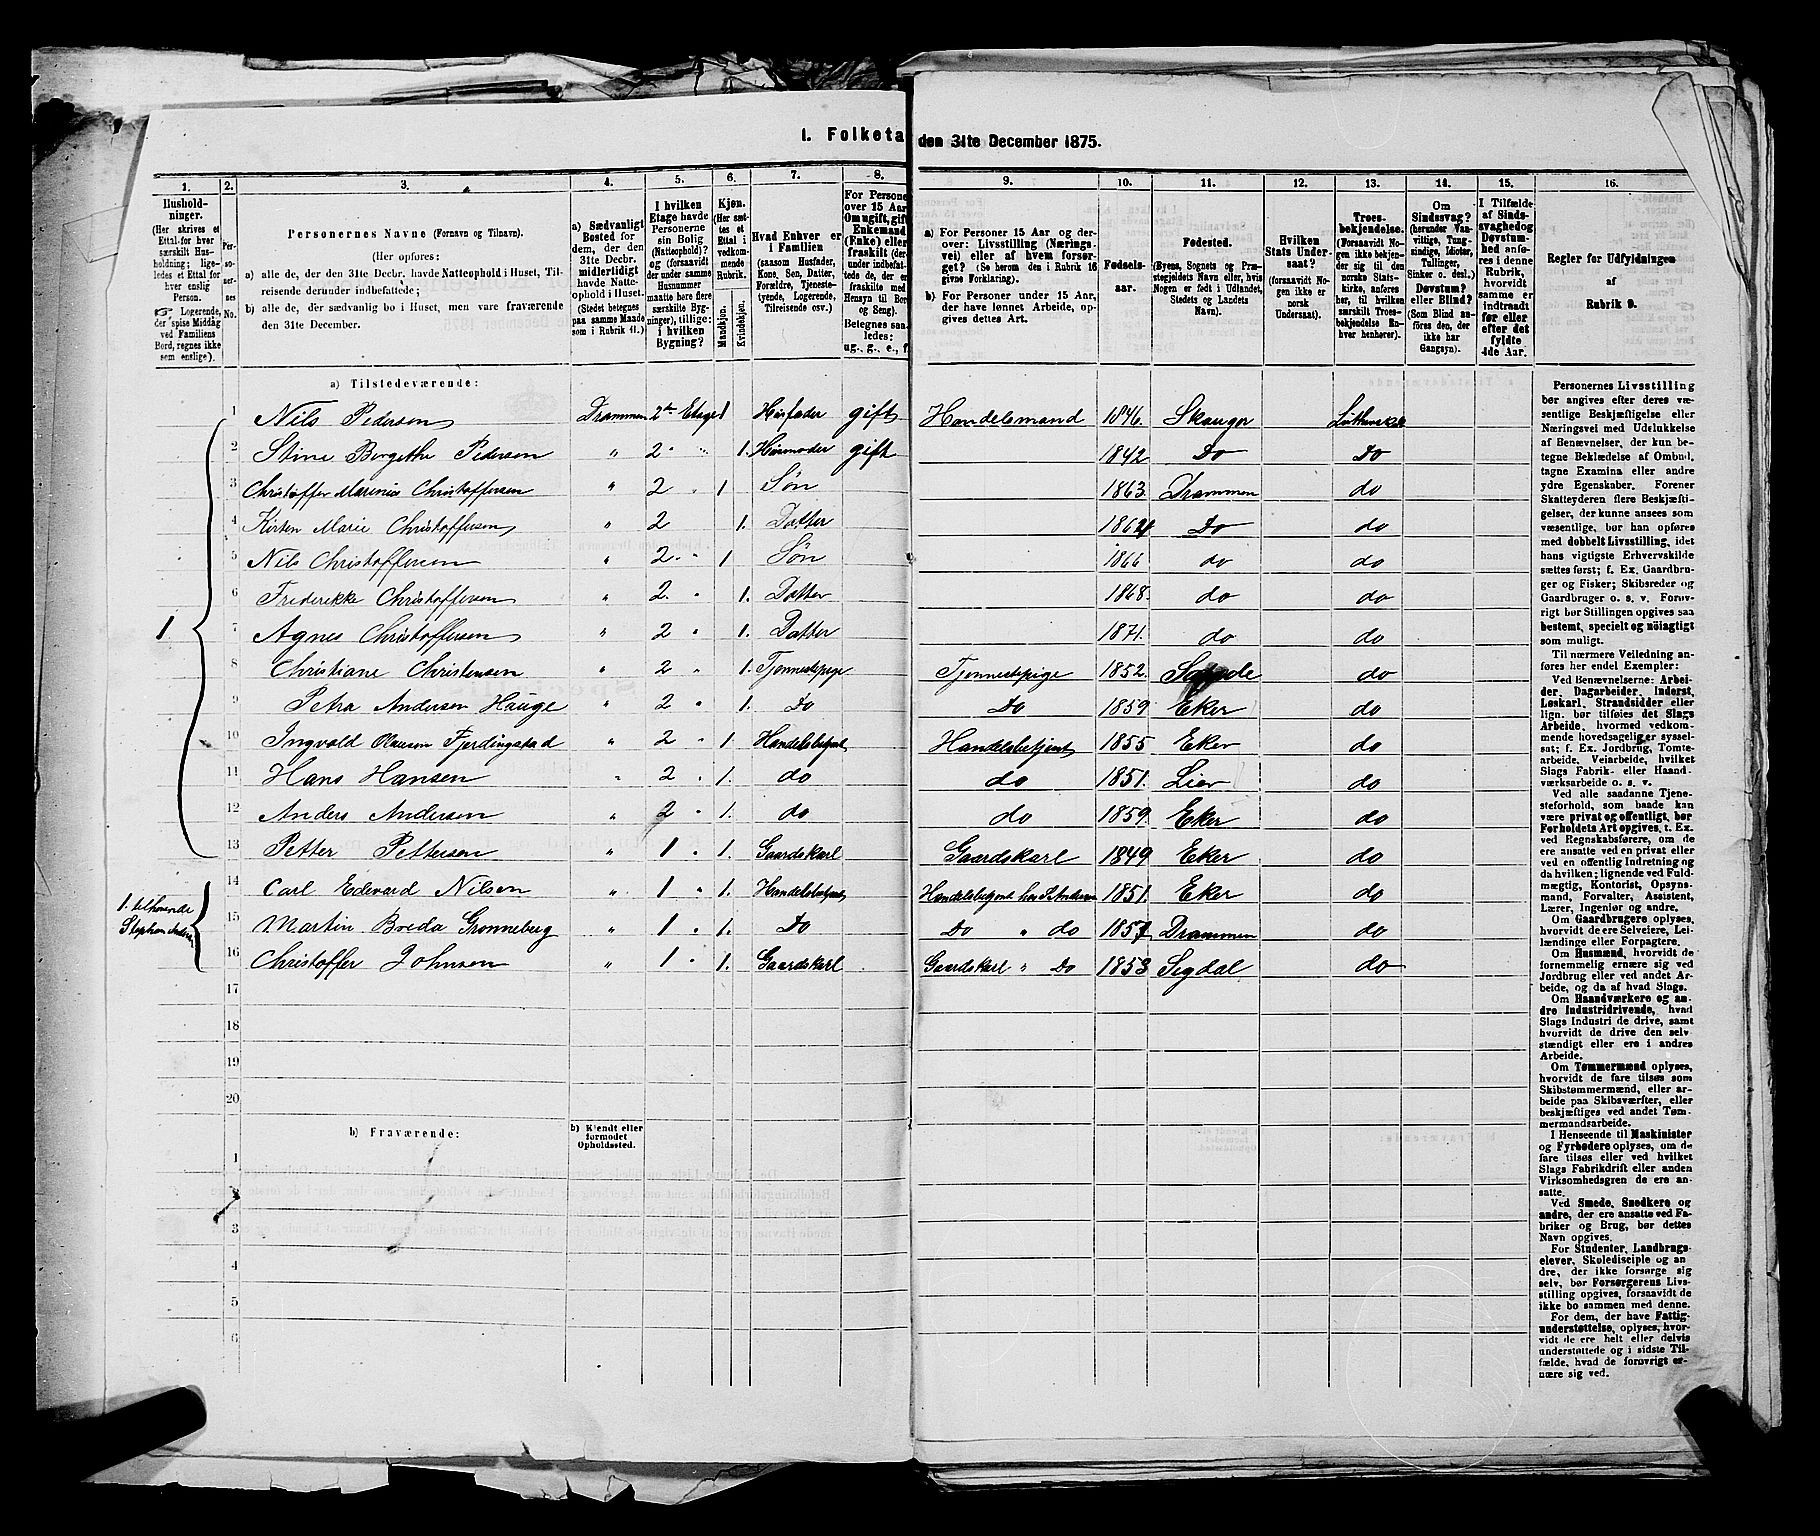 I. Folketa den 31te December 1875.
1. 2. 3. 4. 5. 6. 7. 8. 9. 10. 11. 12. 13. 14. 15. 16.
Husholdninger.
(Her skrives et Ettal for hver særskilt Husholdning; ligeledes et Ettal for hver enslig Person.
☞ Logerende, der spise Middag ved Familiens Bord, regnes ikke som enslige).
Personernes No.
Personernes Navne (Fornavn og Tilnavn).
(Her opføres:
a) alle de, der den 31te Decbr. havde Natteophold i Huset, Tilreisende derunder indbefattede;
b) alle de, der sædvanlig bo i Huset, men vare fraværende den 31te December.
a) Sædvanligt Bosted for dem, der den 31te Decbr. midlertidigt havde Natteophold i Huset. (Stedet betegnes paa samme Maade som i Rubrik 11.)
I hvilken Etage havde Personerne sin Bolig (Natteophold)? og (forsaavidt der under samme Husnummer maatte høre flere særskilte Bygninger), tillige: i hvilken Bygning?
Kjøn. (Her sættes et Ettal i vedkommende Rubrik.
Mandkjøn. Kvindekjøn.
Hvad Enhver er i Familien
(saasom Husfader, Kone, Søn, Datter, Forældre, Tjenestetyende, Logerende, Tilreisende osv.)
For Persone over 15 Aar, Om ugift, gift Enkemand (Enke) eller fraskilt (der under indbefattede de, der er fraskilte med Hensyn til Bord og Seng).
Betegnes saaledes: ug., g., e., f.
a) For Personer 15 Aar og derover: Livsstilling (Næringsvei) eller af hvem forsørget? (Se herom den i Rubrik 16 givne Forklaring).
b) For Personer under 15 Aar, der have lønnet Arbeide, opgives dettes Art.
Fødselsaar.
Fødested.
(Byens, Sognets og Præstegjeldets Navn eller, hvis Nogen er født i Udlandet, Stedets og Landets Navn).
Hvilken Stats Undersaat?
(forsaavidt Nogen ikke er norsk Undersaat).
Troesbekjendelse.
(Forsaavidt Nogen ikke bekjender sig til den norske Statskirke, anføres her, til hvilken særskilt Troesbekjendelse Enhver henhører).
Om Sindssvag? (herunder Vanvittige, Tungsindige, Idioter, Tullinger, Sinker o. desl.) Døvstum? eller Blind? (Som Blind anføres den, der ikke har Gangsyn).
I Tilfælde af Sindssvaghed og Døvstumhed anføres i denne Rubrik, hvorvidt samme er indtraadt før eller efter det fyldte 4de Aar.
Regler for Udfyldningen af Rubrik 9.
a) Tilstedeværende:
1 Nils Pedersen Drammen 2den Etage 1 Husfader gift Handelsmand 1846. Skauger Lutheranske
2 Stine Bergethe Pedersen " 2 " 1. Husmoder gift 1842 Do Do
3 Christoffer Marinius Christoffersen " 2 " 1 Søn 1863. Drammen do
4 Kirsten Marie Christoffersen " 2 1. Datter 1864 Do do
5 Nils Christoffersen " 2 " 1 Søn 1866 do do
6 Frederikke Christoffersen " 2. " 1. Datter 1868. do do
1. 7 Agnes Christoffersen " 2 " 1. Datter 1871. do do
8 Christiane Christensen " 2 " 1. Tjennestepige Tjennestepige 1852. Sande do
9 Petra Andersen Hauge " 2 " 1. Do Do 1859 Eker do
10 Ingvald Olausen Fjerdingstad " 2 " 1. Handelsbetjent Handelsbetjent 1855 Eker do
11 Hans Hansen " 2 " 1. do do 1851. Lier do
12 Anders Andersen " 2 " 1. do do 1859. Eker do
13 Petter Pettersen " 1 " 1. Gaardskarl Gaardskarl 1849 Eker do
14 Carl Edevard Nilsen " 1 " 1. Handelsbetjent Handelsbetjent hos S. Andersen 1851. Eker do
1. tilhørende Stephan Andersen
15 Martin Breda Grønneberg " 1 " 1. Do Do " do 1857 Drammen do
16 Christoffer Johnsen " 1 " 1. Gaardskarl Gaardskarl " Do 1853 Sigdal do
17
18
19
20
b) Fraværende:
b) Kjendt eller formodet Opholdssted.
1
2
3
4
5
6
Personernes Livsstilling
bør angives efter deres væ-
sentlige Beskjæftigelse eller
Næringsvei med Udelukkelse
af Benævnelser, der kun be-
tegne Beklædelse af Ombud,
tagne Examina eller andre
ydre Egenskaber. Forener
Skatteyderen flere Beskjæfti-
gelser, der kunne ansees som
væsentlige, bør han opføres
med dobbelt Livsstilling, idet
hans vigtigste Erhvervskilde
sættes først; f. Ex. Gaardbru-
ger og Fisker; Skibsreder og
Gaardbruger o. s. v. Forøv-
rigt bør Stillingen opgives saa
bestemt, specielt og nøiagtigt
som muligt.
Til nærmere Veiledning an-
føres her endel Exempler:
Ved Benævnelserne: Arbei-
der, Dagarbeider, Inderst,
Løskarl, Strandsidder eller
lign. bør tilføies det Slags
Arbeide, hvormed vedkom-
mende hovedsagelig er syssel-
sat; f. Ex. Jordbrug, Tomte-
arbeide, Veiarbeide, hvilket
Slags Fabrik- eller Haand-
værksarbeide o. s. v.
Ved alle saadanne Tjene-
steforhold, som baade kan
være privat og offentligt, bør
Forholdets Art opgives, t. Ex.
ved Regnskabsførere, om de
ere ansatte ved en privat eller
ved en offentlig Indretning og
da hvilken; lignende ved Fuld-
mægtig, Kontorist, Opsyns-
mand, Forvalter, Assistent,
Lærer, Ingeniør og andre.
Om Gaardbrugere oplyses,
hvorvidt de ere Selveiere, Lei-
lændinge eller Forpagtere.
Om Husmænd, hvorvidt de
fornemmelig ernære sig ved
Jordbrug eller ved andet Ar-
beide, og da af hvad Slags.
Om Haandværkere og an-
dre Industridrivende, hvad
Slags Industri de drive, samt
hvorvidt de drive den selv-
stændigt eller ere i andres
Arbeide.
Om Tømmermænd oplyses,
hvorvidt de fare tilsøs som
Skibstømmermænd, eller ar-
beide paa Skibsværfter, eller
beskjæftiges ved andet Tøm-
mermandsarbeide.
I Henseende til Maskinister
og Fyrbødere oplyses, om de
fare tilsøs eller ved hvilket
Slags Fabrikdrift eller anden
Virksomhedsgren de ere an-
satte.
Ved Smede, Snedkere og
andre, der ere ansatte ved Fa-
briker og Brug, bør dettes
Navn opgives.
For Studenter, Landbrugs-
elever, Skoledisciple og an-
dre, der ikke forsørge sig
selv, bør Forsørgerens Livs-
stilling opgives, forsaavidt de
ikke bo sammen med denne.
For dem, der have Fattig-
understøttelse, oplyses, hvor-
vidt de ere helt eller delvis
understøttede og i sidste Til-
fælde, hvad de forøvrigt er-
nære sig ved.